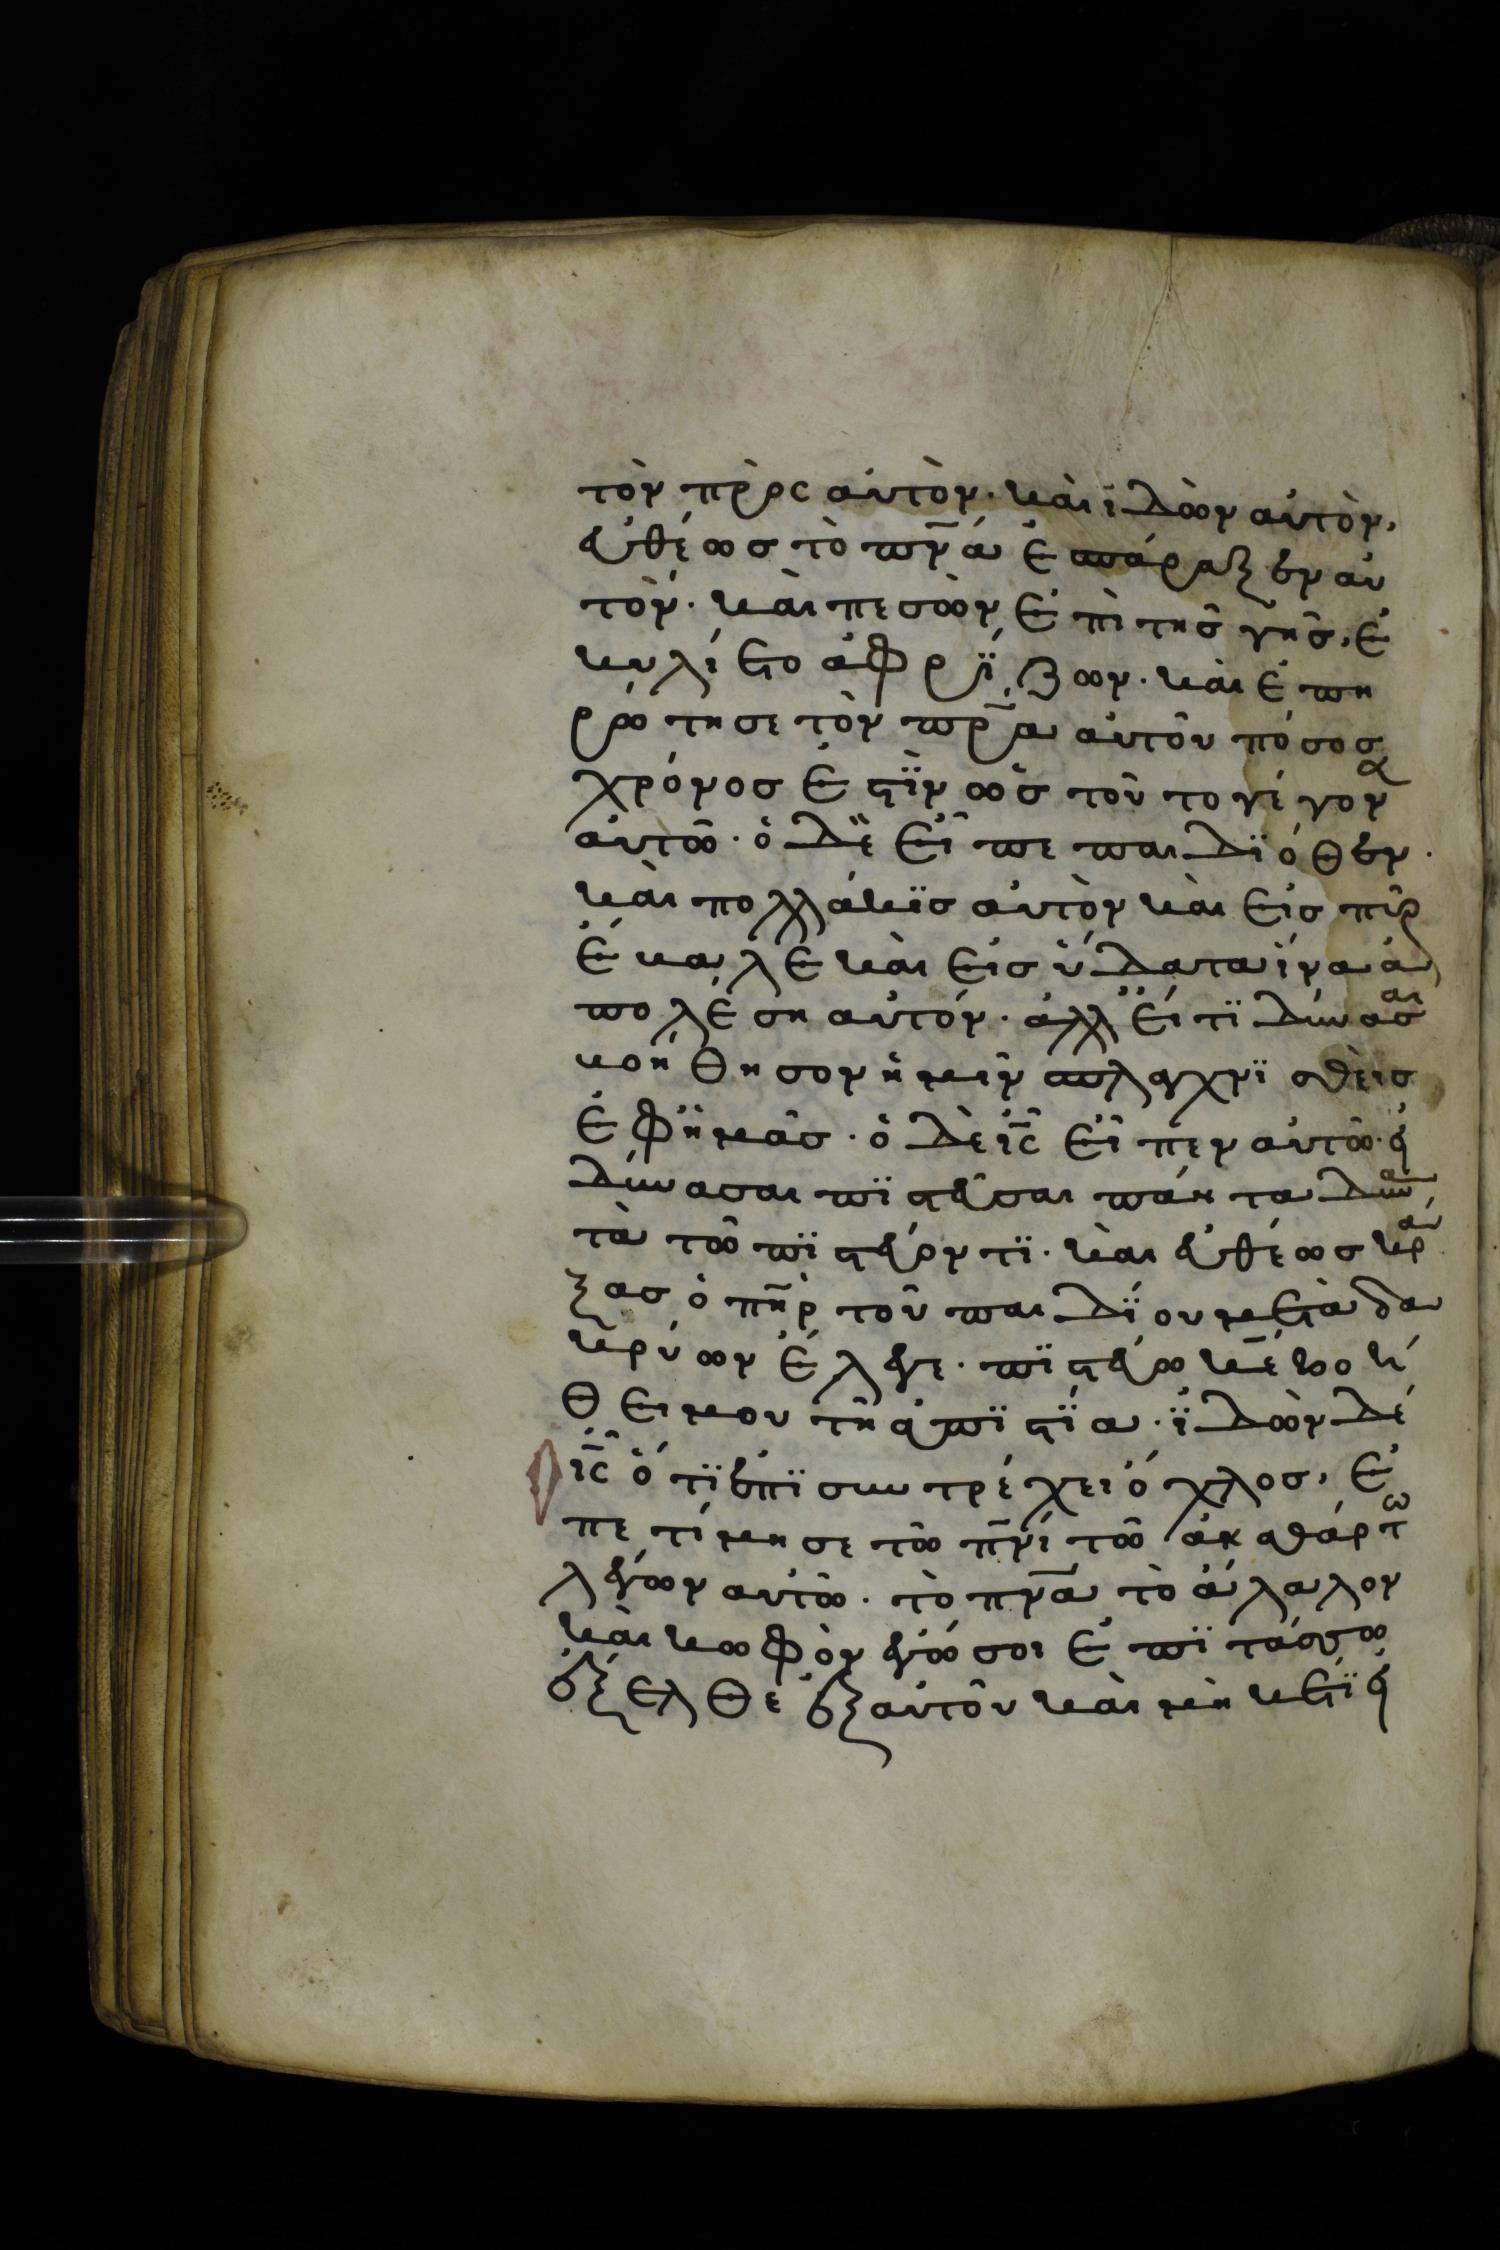 τὸν πρὸς αὐτὸν· καὶ ἰδὼν αὐτὸν,
εὐθέωσ τὸ πν̅ά ἐσπάραξεν αὐ
τόν· καὶ πεσὼν ἐπὶ τησ γῆσ, ἐ
κυλίετο ἀφρΐζων· καὶ ἐπη
ρώτησε τὸν πρ̅α αὐτοῦ πόσοσ
χρόνοσ ἐστῒν ὡσ τοῦτο γέγον
αὐτῶ· ὁ δὲ εἶπε παιδϊόθεν·
καὶ πολλάκϊσ αὐτὸν καὶ εἰσ πῦρ
ἔβαλε καὶ εἰσ ὕδατα ἵνα ἀ
πολέση αὐτόν· ἀλλ εἴ τϊ δύνασαι
βοήθησον ἡμῖν σπλαγχνϊσθεὶσ
ἐφ ἡμᾶσ· ὁ δὲ ι̅ς̅ εἶπεν αὐτῶ· εἰ
δύνασαι πϊστεῦσαι πάντα δυνα
τὰ τῶ πϊστεύοντϊ· καὶ εὐθέωσ κρά
ξασ ὁ πη̅ρ τοῦ παιδΐου μετὰ δα
κρύων ἔλεγε· πϊστεύω κ̅έ βοή
θει μου τῆ ἀπϊστΐα· ϊδὼν δέ
ι̅ς̅ ὅτϊ ἐπϊσυντρέχει ὄχλοσ, ἐ
πετίμησε τῶ πν̅ί τῶ ἀκαθάρτω
λέγων αὐτῶ· τὸ πν̅α τὸ ἄλαλον
καὶ κωφὸν ἐγώ σοι ἐπϊτάσσω
ἔξελθε ἐξ αὐτοῦ καὶ μη κετϊ εἰ